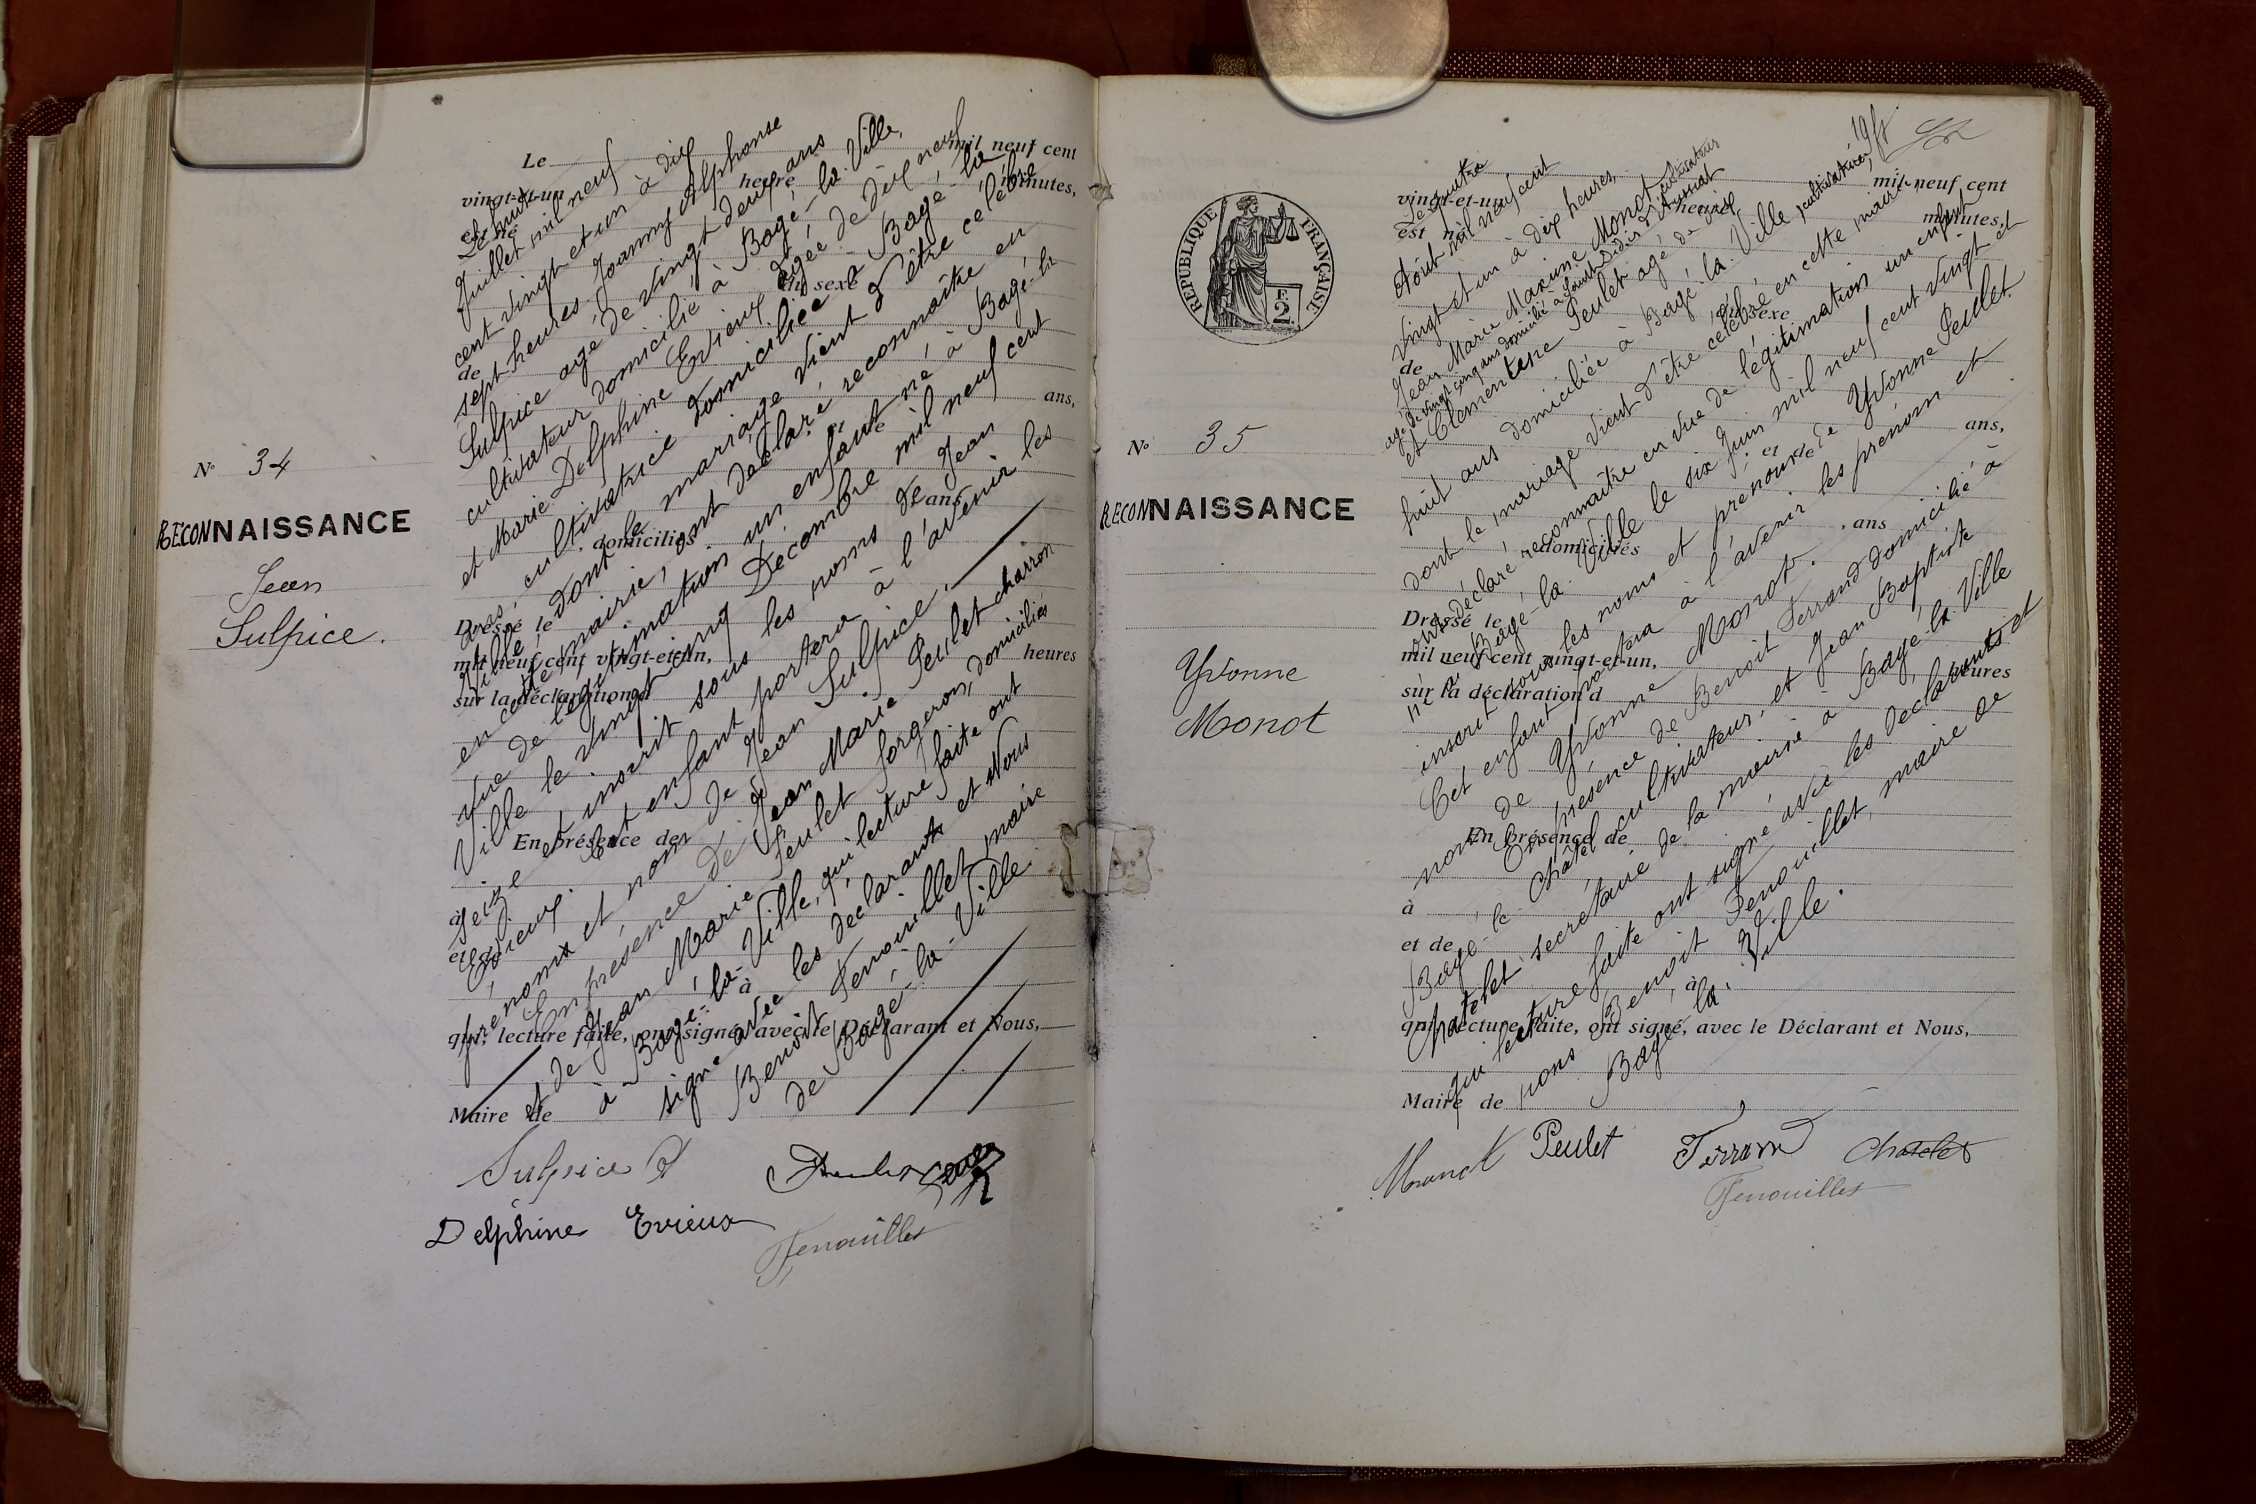 Le mil neuf cent
vingt-et-un heure minutes,
est né
de
du sexe
ans,
et de
ans
domiciliés
Dressé le
mil neuf cent vingt-et-un, heures
sur la déclaration d
En présence de
à
et de
à
qui, lecture faite, ont signé, avec le Déclarant et Nous,
Maire de
Le huit
Juillet mil neuf
cent vingt et un à dix
sept heures Joanny Alphonse
Sulpice agé de vingt deux ans
cultivateur domicilié à Bagé-la-Ville,
et Marie Delphine Evieux agée de dix neuf
ans, cultivatrice domiciliée à Bagé-la
Ville, dont le mariage vient d'être célébré
en cette mairie, ont déclaré reconnaître en
vue de légitimation un enfant né à Bagé-la
Ville le vingt cinq Décembre mil neuf cent
seize et inscrit sous les noms de Jean
Evieux. Cet enfant portera à l'avenir les
prénom et nom de Jean Sulpice.
En présence de Jean Marie Peulet charron
et de Jean Marie Peulet forgeron, domiciliés
à Bagé-la-Ville, qui lecture faite ont
signé avec les déclarants et Nous
Benoît Fenouillet maire
de Bagé-la-Ville
N° 34
RECONNAISSANCE
Jean
Sulpice.
Sulpice
Delphine Evieux
Fenouillet
19
RÉPUBLIQUE FRANÇAISE
F.
2
mil neuf cent
vingt-et-un heure minutes,
est né
de
du sexe
ans,
et de
ans
domiciliés
Dressé le
mil neuf cent vingt-et-un, heures
sur la déclaration d
En présence de
à
et de
à
qui, lecture faite, ont signé, avec le Déclarant et Nous,
Maire de
Le quatre
Août mil neuf cent
vingt et un à dix heures,
Jean Marie Maxime Monot cultivateur
agé de vingt cinq ans domicilié à Saint Didier d'Aussiat
et Clementine Peulet agé de dix
huit ans domiciliée à Bagé-la-Ville, cultivatrice,
dont le mariage vient d'être célébré en cette mairie,
ont déclaré reconnaître en vue de légitimation un enfant
né à Bagé-la-Ville le six Juin mil neuf cent vingt et
inscrit sous les noms et prénoms de Yvonne Peulet.
Cet enfant portera à l'avenir les prénom et
nom de Yvonne Monot.
En présence de Benoit Ferrand domicilié à
Bagé-le-Châtel cultivateur, et Jean Baptiste
Chatelet secrétaire de la mairie à Bagé-la-Ville
qui lecture faite ont signé avec les declarants et
nous Benoit Fenouillet, maire de
Bagé-la-Ville.
N° 35
RECONNAISSANCE
Yvonne
Monot
Monot Peulet Ferrand Chatelet
Fenouillet